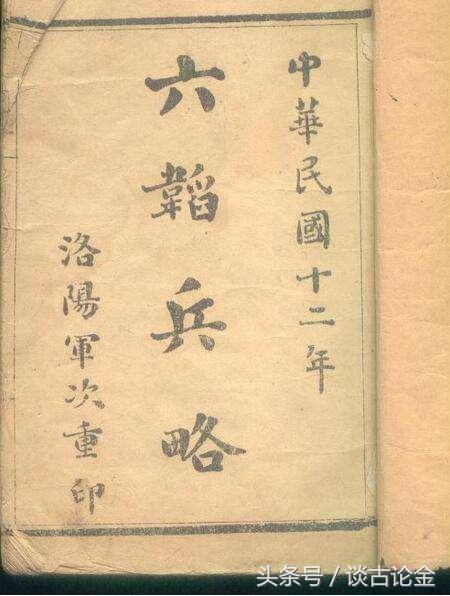 中華民國十二年
六韜兵略
洛陽軍次重印
头条号／谈古论金